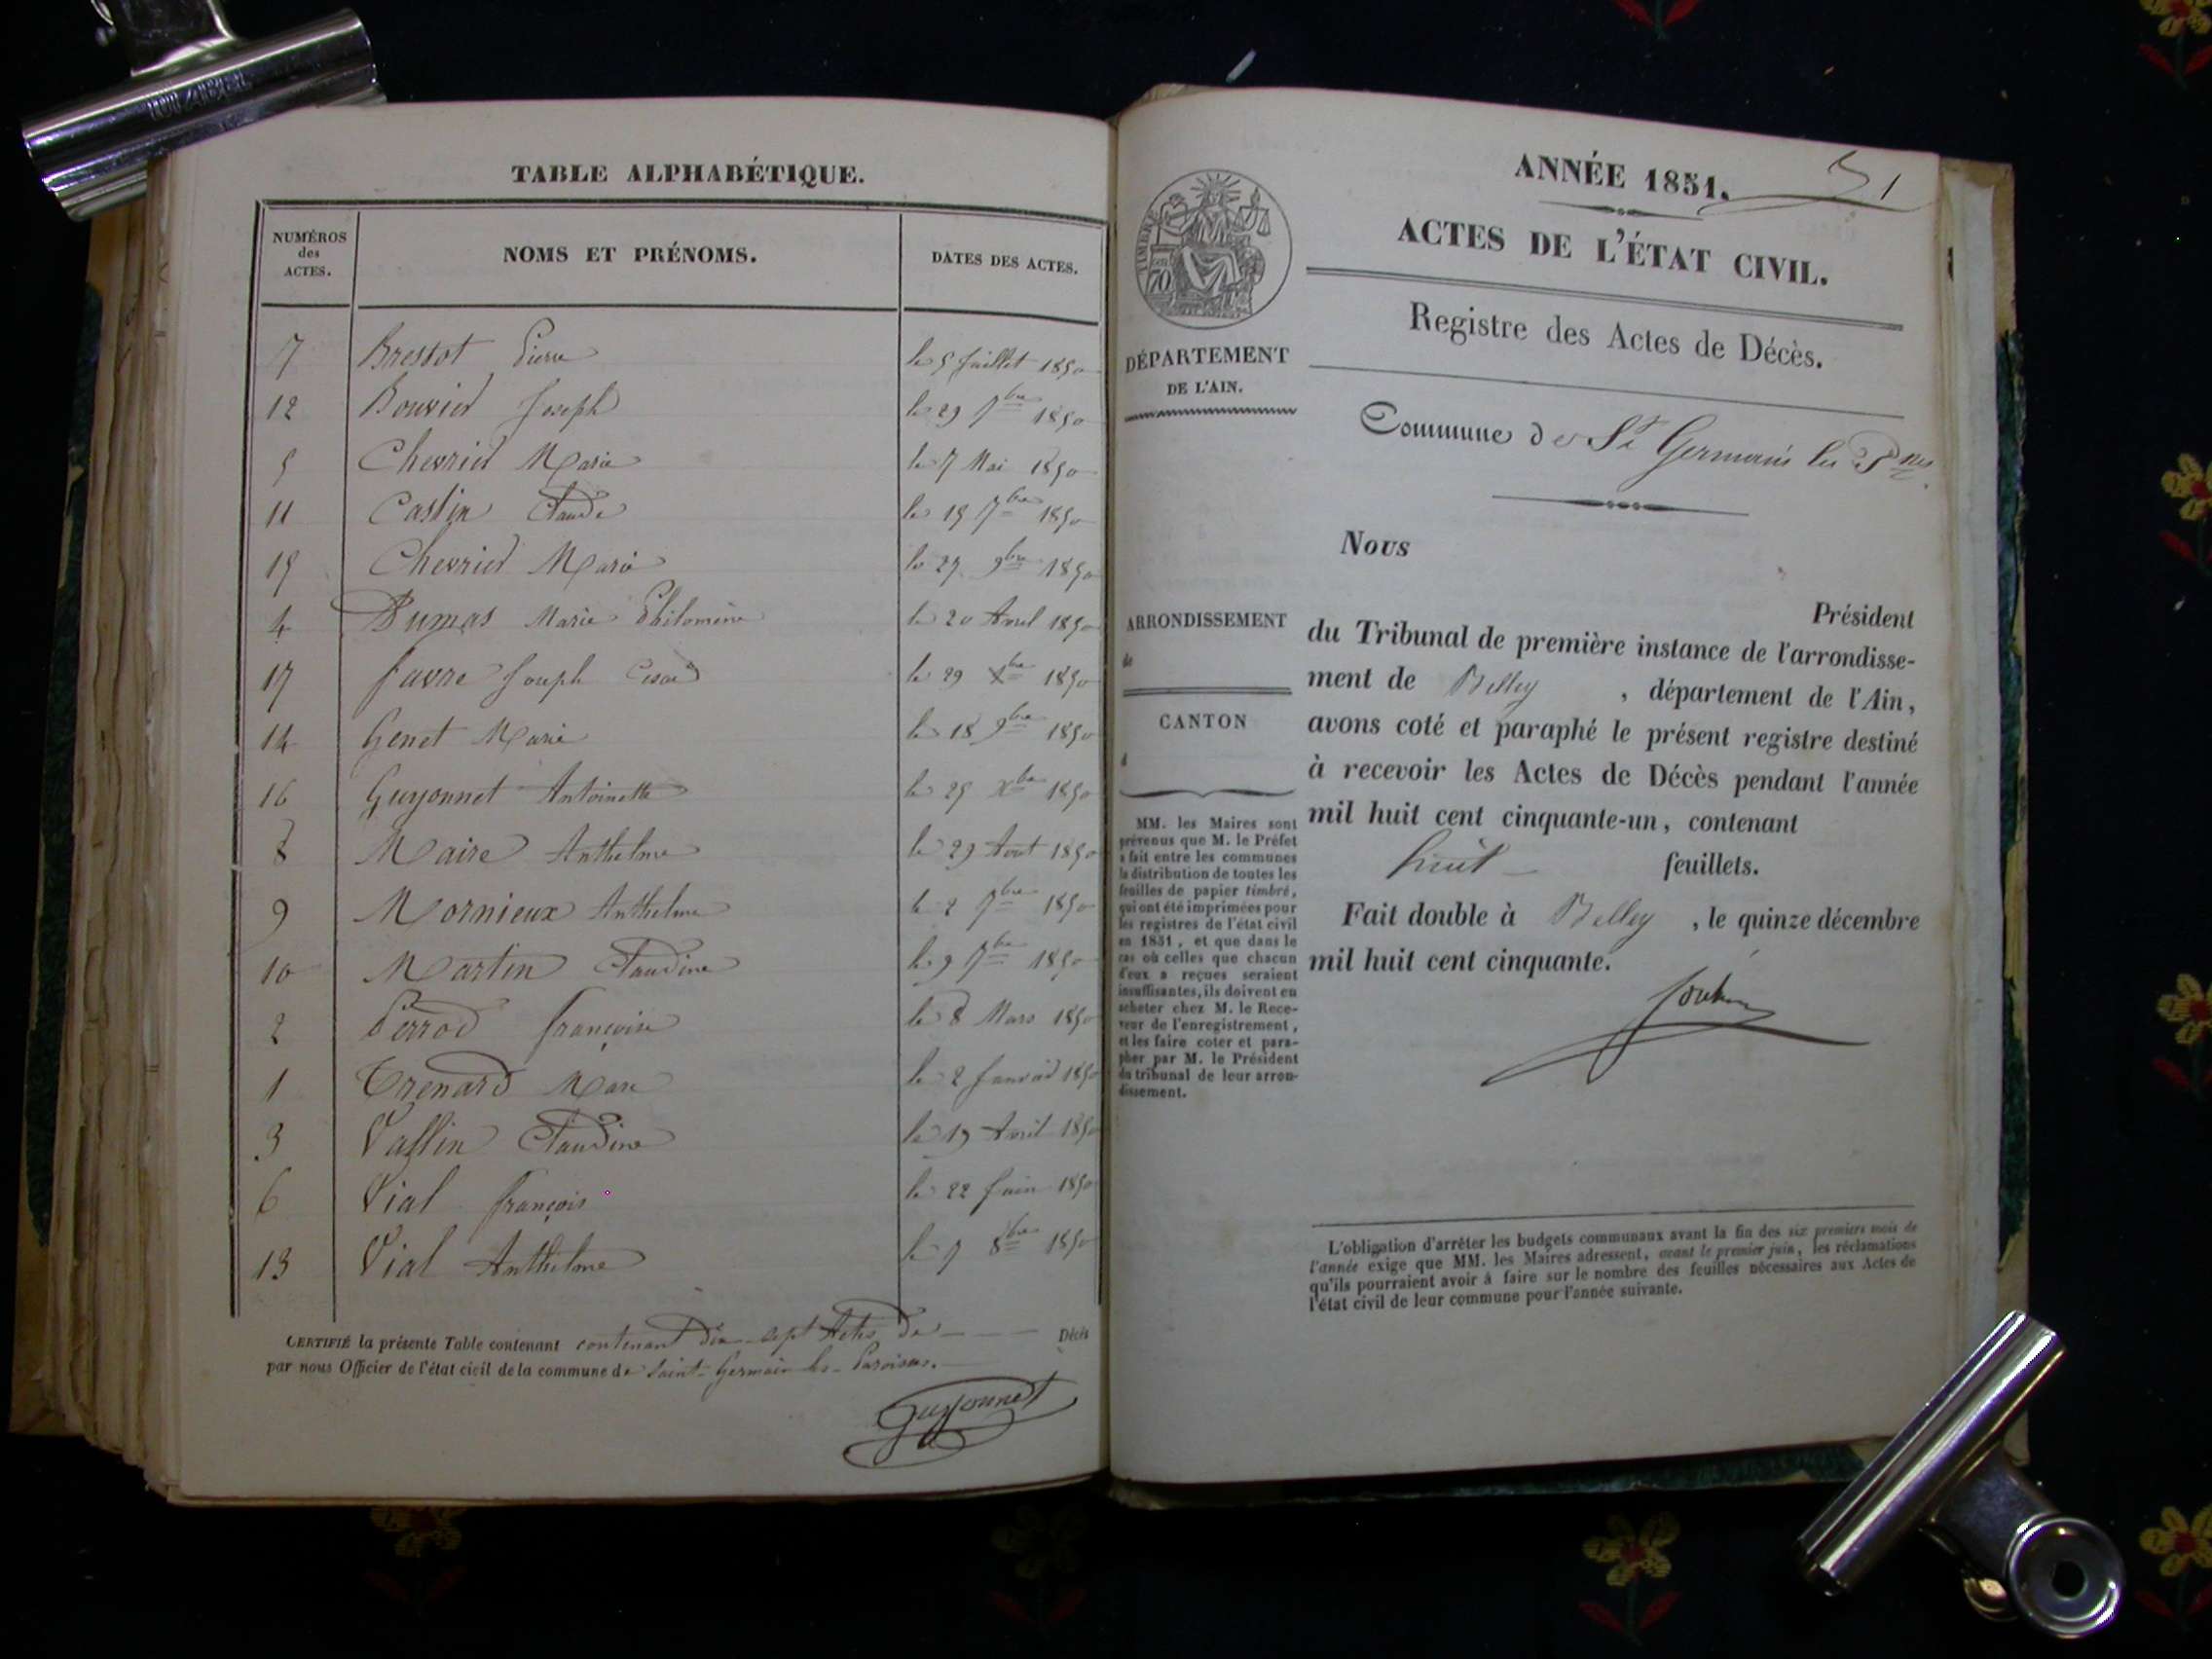 TABLE ALPHABÉTIQUE.
NUMÉROS des ACTES. NOMS ET PRÉNOMS. DATES DES ACTES.
7 Bressot Pierre le 5 Juillet 1850
12 Bouvier Joseph le 29 7bre 1850
5 Chevrier Marie le 7 Mai 1850
11 Castin Claude le 15 7bre 1850
15 Chevrier Marie le 27 9bre 1850
4 Dumas Marie Philomène le 20 Avril 1850
17 Favre Joseph Cesar le 29 Xbre 1850
14 Genet Marie le 18 9bre 1850
16 Guyonnet Antoinette le 25 Xbre 1850
8 Maire Anthelme le 29 Aout 1850
9 Mornieux Anthelme le 2 7bre 1850
10 Martin Claudine le 9 7bre 1850
2 Perrod françoise le 8 Mars 1850
1 Trenard Marie le 2 Janvier 1850
3 Vallin Claudine le 19 Avril 1850
6 Vial françois le 22 Juin 1850
13 Vial Anthelme le 7 8bre 1850
CERTIFIÉ la présente Table contenant contenant dix-sept Actes de Décès
par nous Officier de l'état civil de la commune de Saint-Germain-les-Paroisses.
Guyonnet
ANNÉE 1851. 51
ACTES DE L'ÉTAT CIVIL.
Registre des Actes de Décès.
TIMBRE
70
DÉPARTEMENT
DE L'AIN.
Commune de St Germain les Pses
Nous
Président
du Tribunal de première instance de l'arrondisse-
ment de Belley, département de l'Ain,
avons coté et paraphé le présent registre destiné
à recevoir les Actes de Décès pendant l'année
mil huit cent cinquante-un, contenant
huit feuillets.
Fait double à Belley, le quinze décembre
mil huit cent cinquante.
ARRONDISSEMENT
de
CANTON
d
MM. les Maires sont
prévenus que M. le Préfet
a fait entre les communes
la distribution de toutes les
feuilles de papier timbré,
qui ont été imprimées pour
les registres de l'état civil
en 1851, et que dans le
cas où celles que chacun
d'eux a reçues seraient
insuffisantes, ils doivent en
acheter chez M. le Rece-
veur de l'enregistrement,
et les faire coter et para-
pher par M. le Président
du tribunal de leur arron-
dissement.
L'obligation d'arrêter les budgets communaux avant la fin des six premiers mois de
l'année exige que MM. les Maires adressent, avant le premier juin, les réclamations
qu'ils pourraient avoir à faire sur le nombre des feuilles nécessaires aux Actes de
l'état civil de leur commune pour l'année suivante.